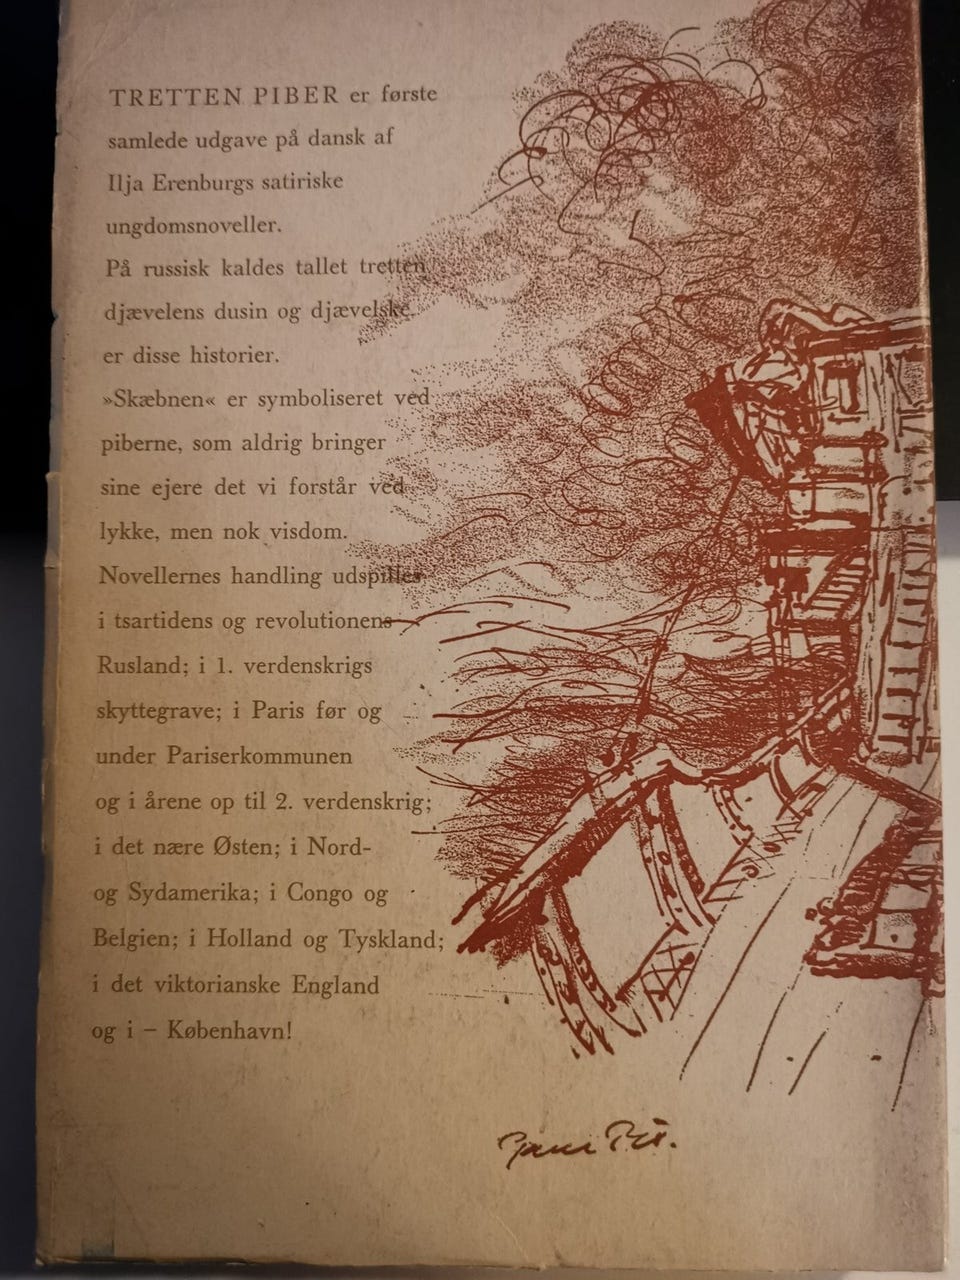 TRETTEN PIBER er første
samlede udgave på dansk af
Ilja Erenburgs satiriske
ungdomsnoveller.
På russisk kaldes tallet tretten
djævelens dusin og djævelske
er disse historier.
»Skæbnen« er symboliseret ved
piberne, som aldrig bringer
sine ejere det vi forstår ved
lykke, men nok visdom.
Novellernes handling udspilles
i tsartidens og revolutionens
Rusland; i 1. verdenskrigs
skyttegrave; i Paris før og
under Pariserkommunen
og i årene op til 2. verdenskrig;
i det nære Østen; i Nord-
og Sydamerika; i Congo og
Belgien; i Holland og Tyskland;
i det viktorianske England
og i – København!